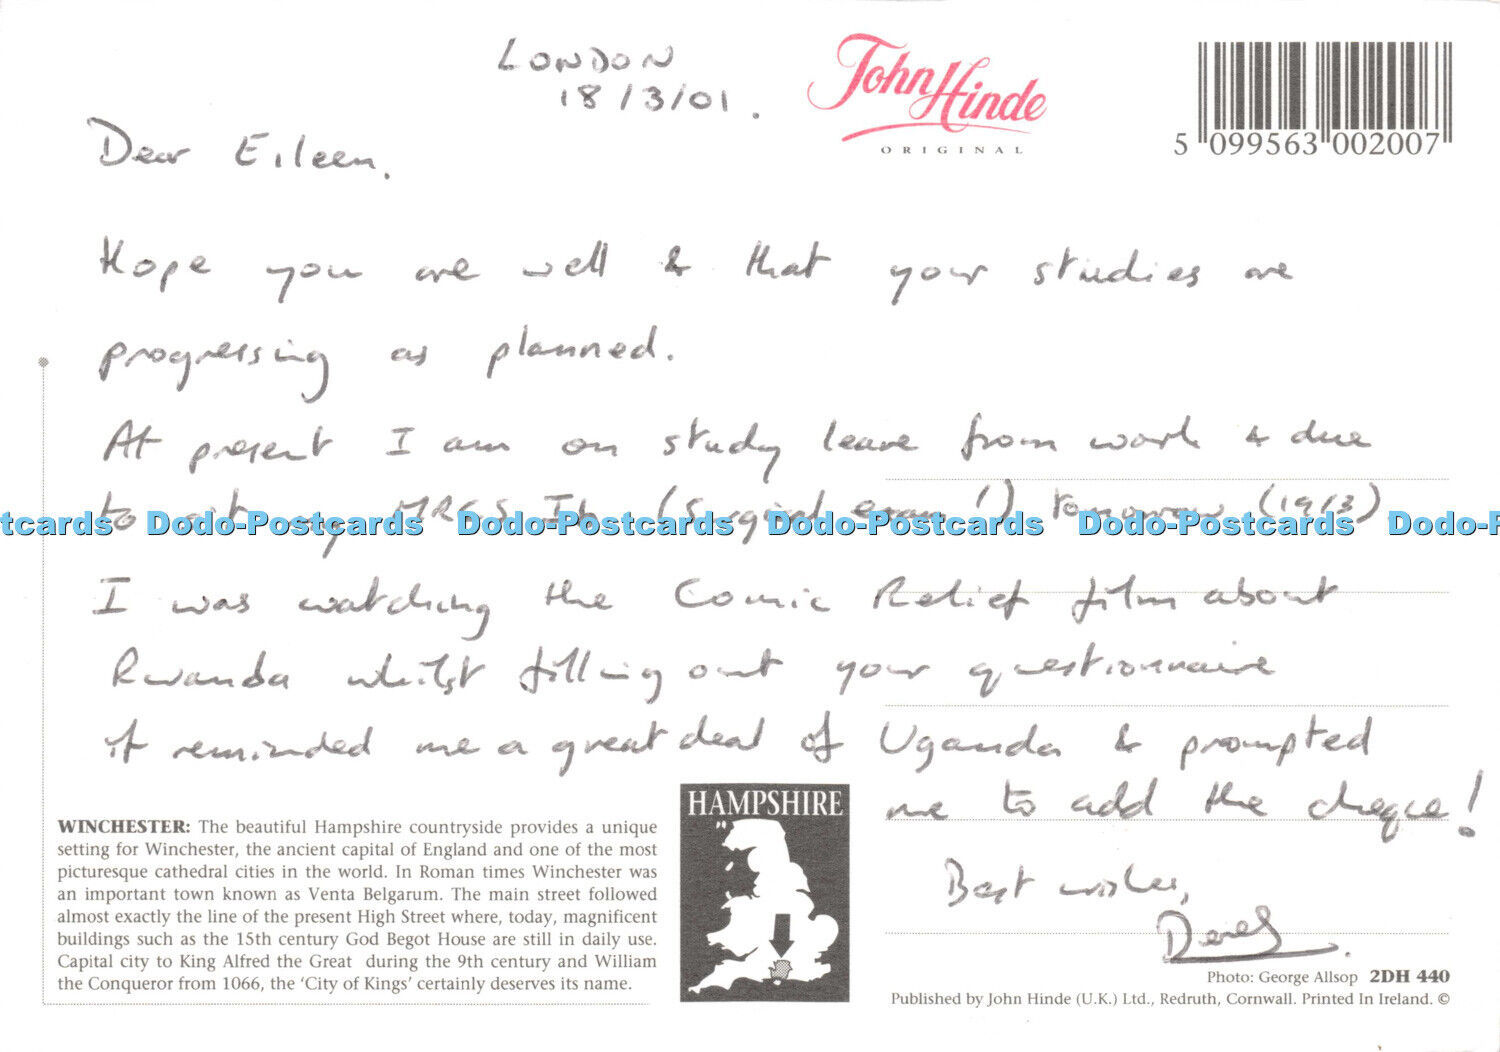 LONDON
18/3/01.
John Hinde
ORIGINAL
5 099563 002007
Dear Eileen,
Hope you are well & that your studies are
progressing as planned.
At present I am on study leave from work & due
to sit my MRCS (Surgical exam!) tomorrow (19/3)
tcards Dodo-Postcards Dodo-Postcards Dodo-Postcards Dodo-Postcards Dodo-P
I was watching the Comic Relief film about
Rwanda whilst filling out your questionnaire
it reminded me a great deal of Uganda & prompted
me to add the cheque!
Best wishes,
Derek
HAMPSHIRE
WINCHESTER: The beautiful Hampshire countryside provides a unique
setting for Winchester, the ancient capital of England and one of the most
picturesque cathedral cities in the world. In Roman times Winchester was
an important town known as Venta Belgarum. The main street followed
almost exactly the line of the present High Street where, today, magnificent
buildings such as the 15th century God Begot House are still in daily use.
Capital city to King Alfred the Great during the 9th century and William
the Conqueror from 1066, the 'City of Kings' certainly deserves its name.
Photo: George Allsop 2DH 440
Published by John Hinde (U.K.) Ltd., Redruth, Cornwall. Printed In Ireland. ©